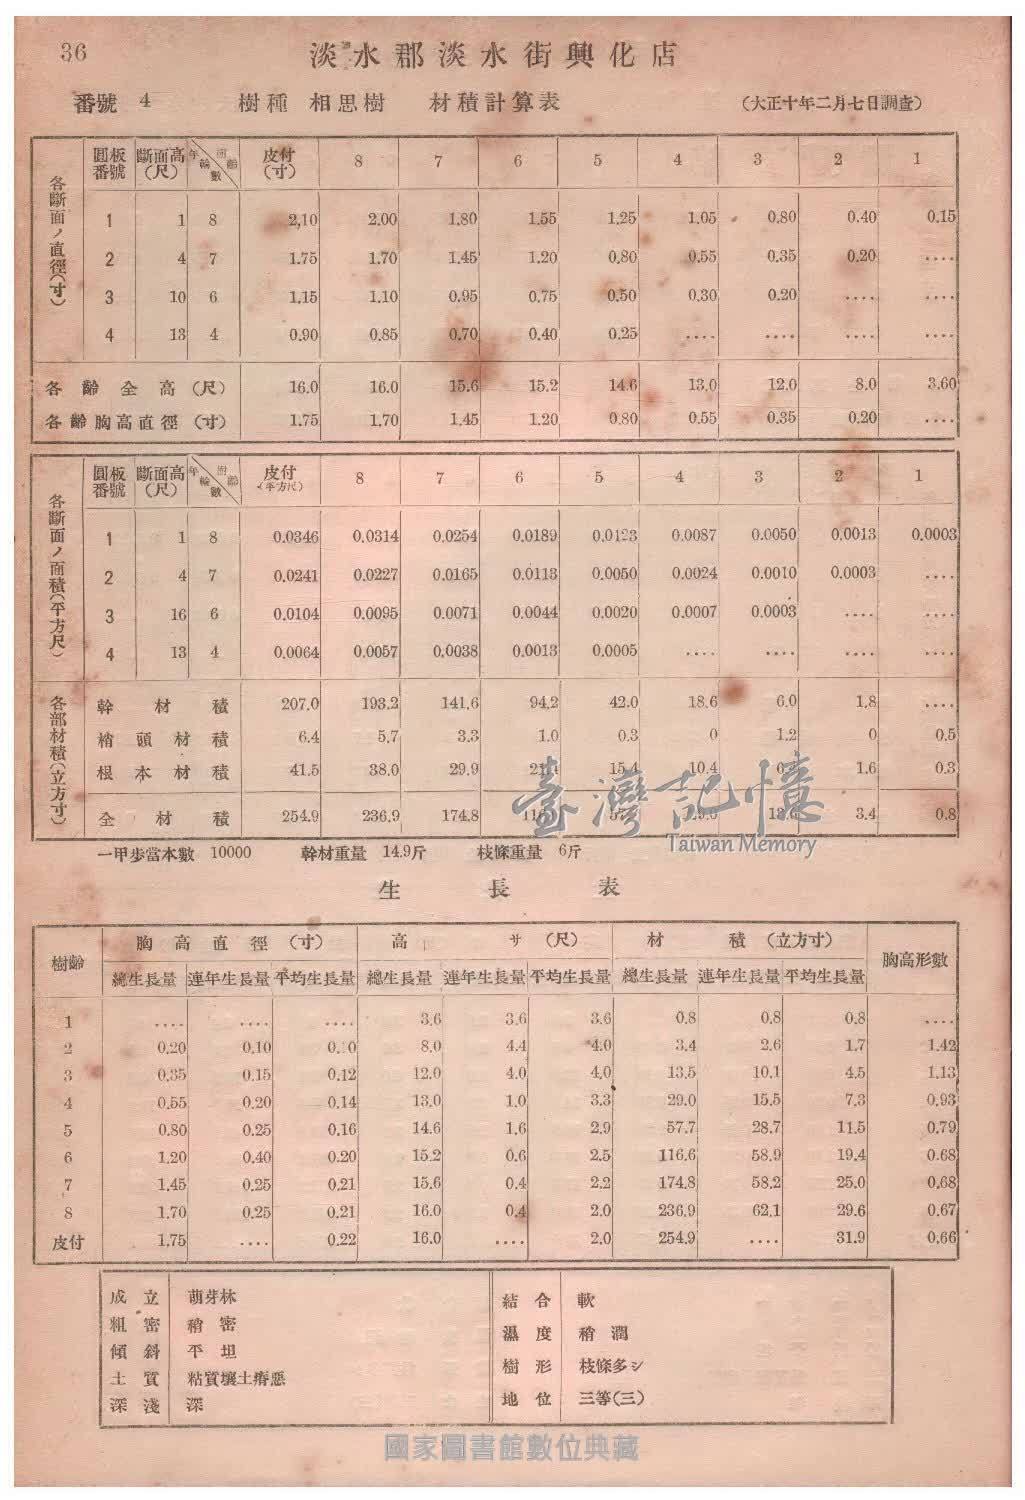 36
淡水郡淡水街興化店
番號 4 樹種 相思樹 材積計算表 (大正十年二月七日調査)
各斷面ノ直徑(寸)
圓板番號 斷面高(尺) 年輪數 齡 皮付(寸) 8 7 6 5 4 3 2 1
1 1 8 2,10 2.00 1.80 1.55 1.25 1.05 0.80 0.40 0.15
2 4 7 1.75 1.70 1.45 1.20 0.80 0.55 0.35 0.20 ....
3 10 6 1.15 1.10 0.95 0.75 0.50 0.30 0.20 .... ....
4 13 4 0.90 0.85 0.70 0.40 0.25 .... .... .... ....
各齡全高(尺) 16.0 16.0 15.6 15.2 14.6 13.0 12.0 8.0 3.60
各齡胸高直徑(寸) 1.75 1.70 1.45 1.20 0.80 0.55 0.35 0.20 ....
各斷面ノ面積(平方尺)
圓板番號 斷面高(尺) 年輪數 齡 皮付(平方尺) 8 7 6 5 4 3 2 1
1 1 8 0.0346 0.0314 0.0254 0.0189 0.0123 0.0087 0.0050 0.0013 0.0003
2 4 7 0.0241 0.0227 0.0165 0.0113 0.0050 0.0024 0.0010 0.0003 ....
3 16 6 0.0104 0.0095 0.0071 0.0044 0.0020 0.0007 0.0003 .... ....
4 13 4 0.0064 0.0057 0.0038 0.0013 0.0005 .... .... .... ....
各部材積(立方寸)
幹材積 207.0 193.2 141.6 94.2 42.0 18.6 6.0 1.8 ....
梢頭材積 6.4 5.7 3.3 1.0 0.3 0 1.2 0 0.5
根本材積 41.5 38.0 29.9 15.4 10.4 1.6 0.3
全材積 254.9 236.9 174.8 3.4 0.8
臺灣記憶
Taiwan Memory
一甲步當本數 10000 幹材重量 14.9斤 枝條重量 6斤
生長表
樹齡 胸高直徑(寸) 高サ(尺) 材積(立方寸) 胸高形數
總生長量 連年生長量 平均生長量 總生長量 連年生長量 平均生長量 總生長量 連年生長量 平均生長量
1 .... .... .... 3.6 3.6 3.6 0.8 0.8 0.8 ....
2 0.20 0.10 0.10 8.0 4.4 4.0 3.4 2.6 1.7 1.42
3 0.35 0.15 0.12 12.0 4.0 4.0 13.5 10.1 4.5 1.13
4 0.55 0.20 0.14 13.0 1.0 3.3 29.0 15.5 7.3 0.93
5 0.80 0.25 0.16 14.6 1.6 2.9 57.7 28.7 11.5 0.79
6 1.20 0.40 0.20 15.2 0.6 2.5 116.6 58.9 19.4 0.68
7 1.45 0.25 0.21 15.6 0.4 2.2 174.8 58.2 25.0 0.68
8 1.70 0.25 0.21 16.0 0.4 2.0 236.9 62.1 29.6 0.67
皮付 1.75 .... 0.22 16.0 .... 2.0 254.9 .... 31.9 0.66
成立 萌芽林
粗密 稍密
傾斜 平坦
土質 粘質壤土瘠惡
深淺 深
結合 軟
濕度 稍潤
樹形 枝條多シ
地位 三等(三)
國家圖書館數位典藏